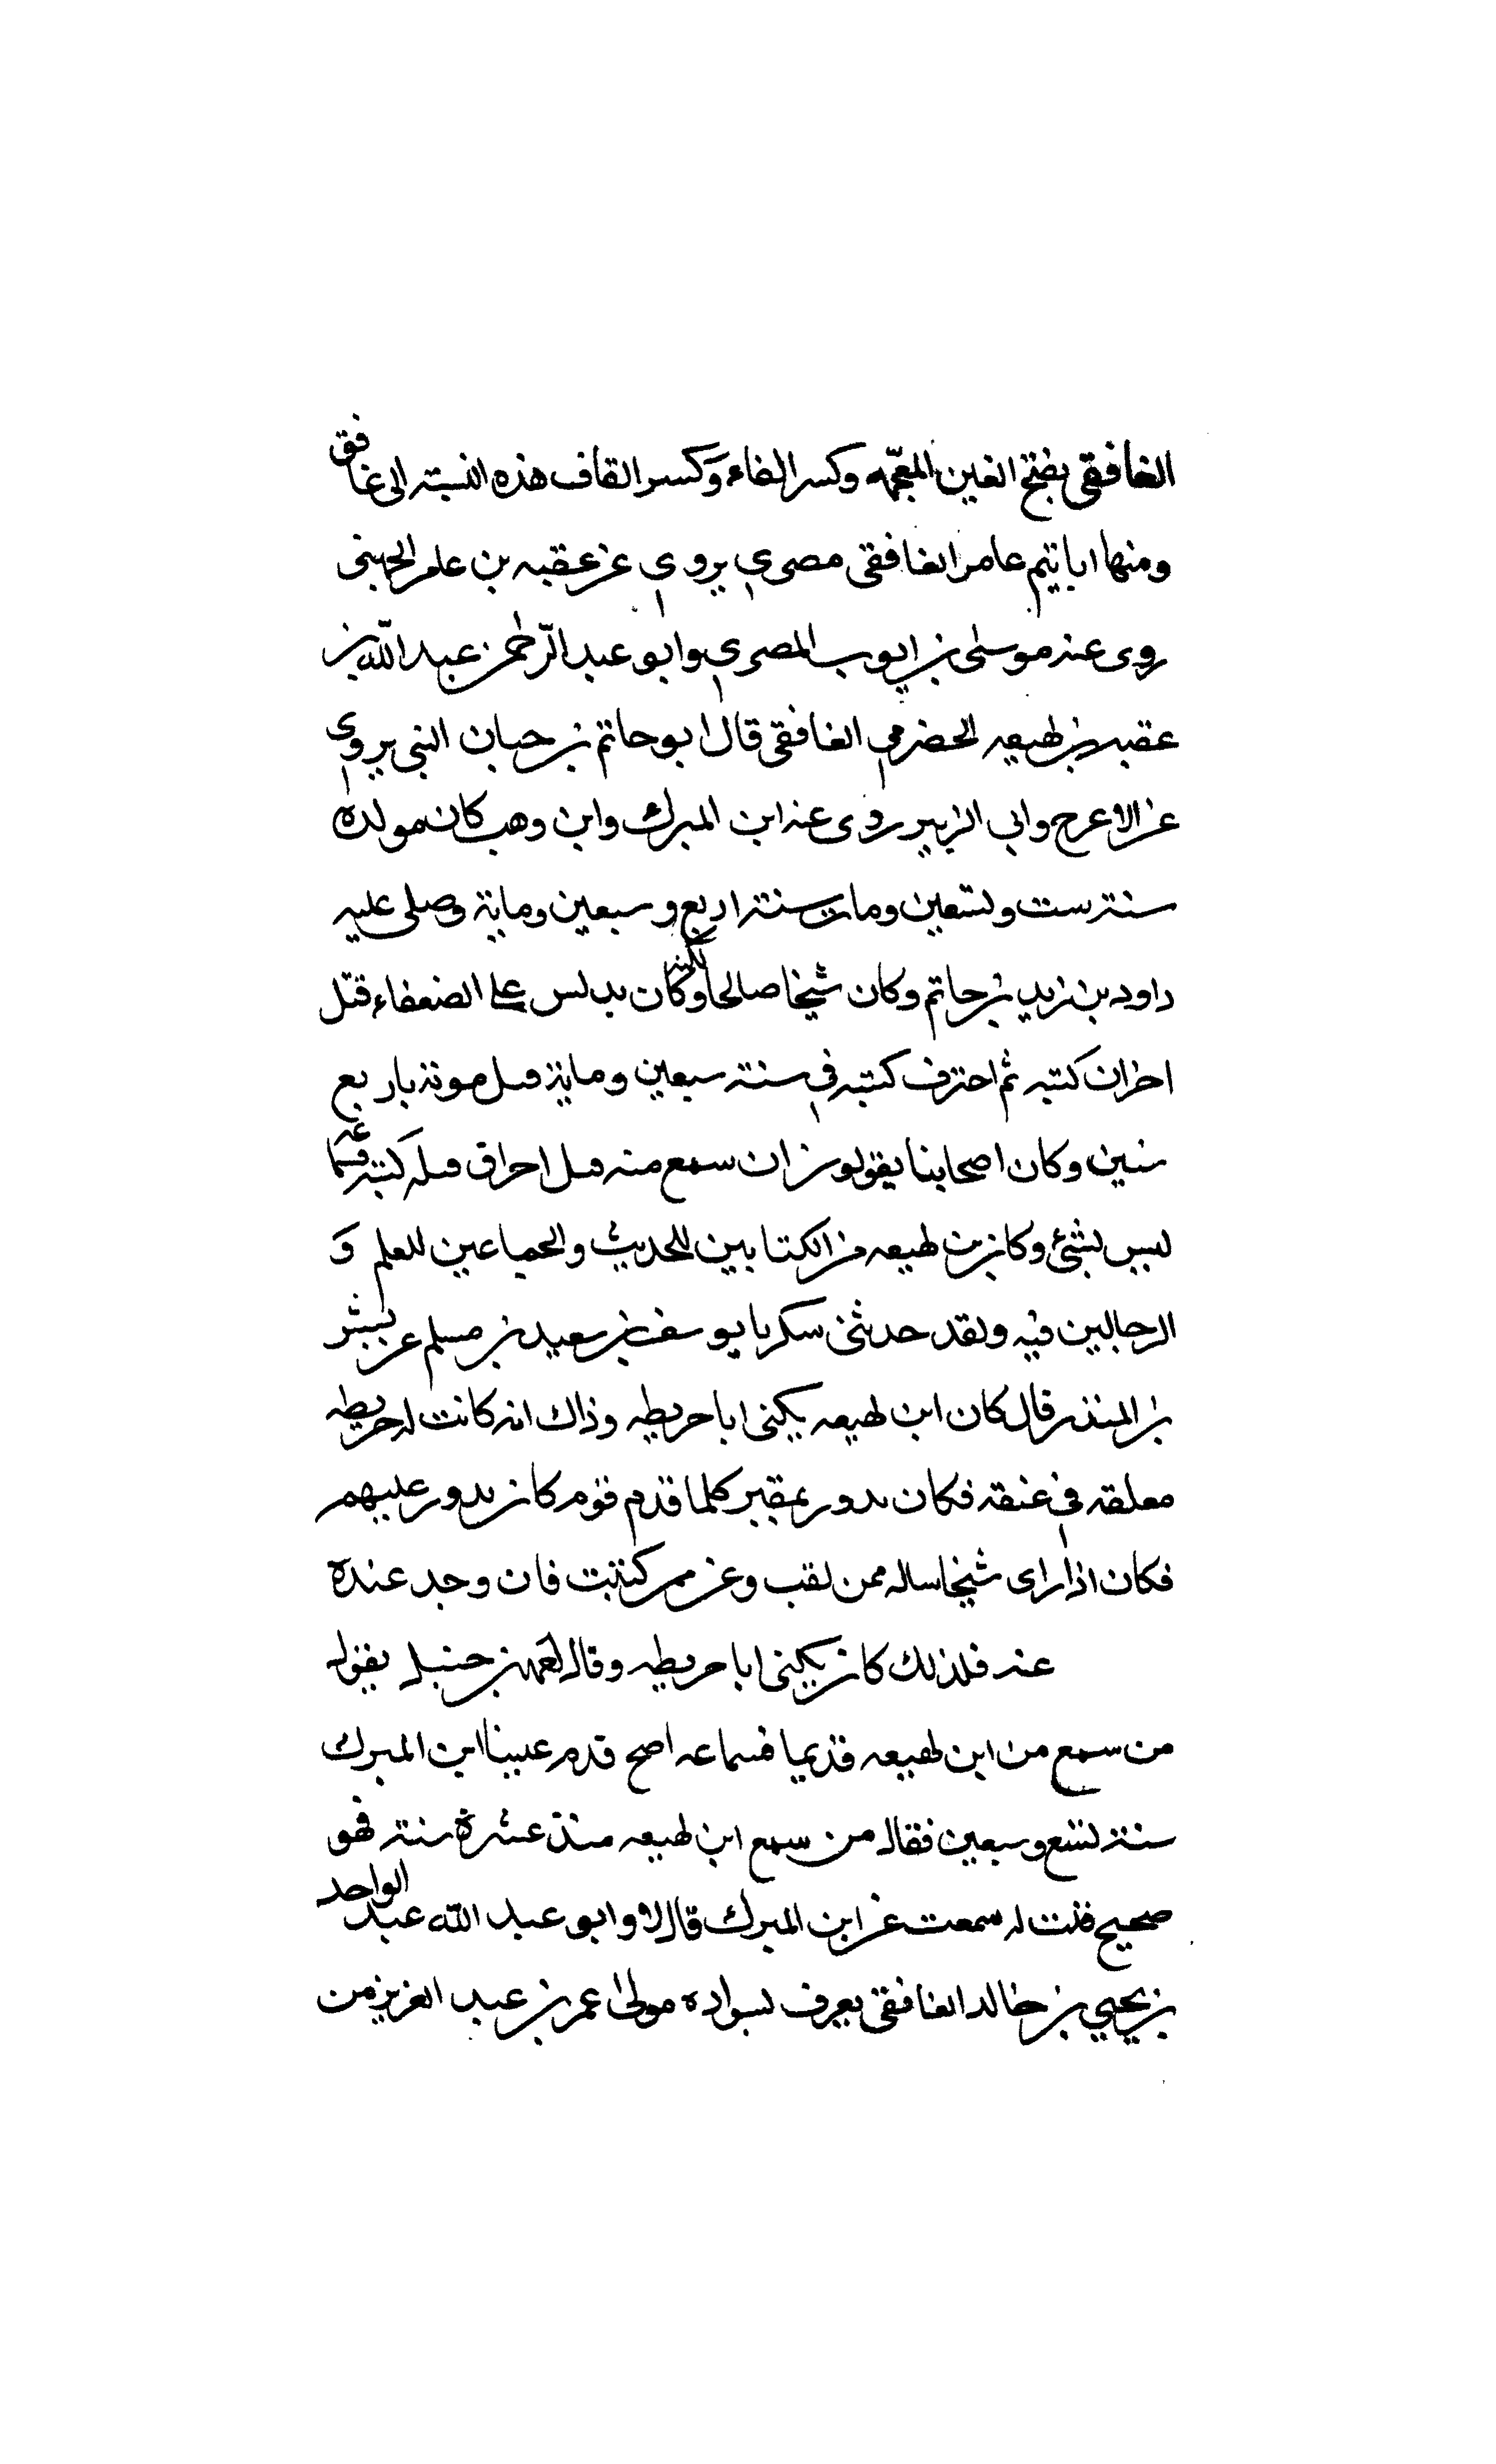 الغافقي بفتح الغين المعجمه وكسر الفاء وكسر القاف هذه النسبة الى غافق
ومنها ابا تيم عامر الغافقي مصري يروي عن عقبه بن عامر الجهني
روى عنه موسى بن ايوب المصري وابو عبد الرحمن عبد الله بن
عقبه بن لهيعه الحضرمي الغافقي قال ابو حاتم بن حبان البني يروي
عن الاعرج وابي الزبير روى عنه ابن المبرك وابن وهب كان مولده
سنة ست وتسعين ومات سنة اربع وسبعين وماية وصلى عليه
داود بن يزيد بن حاتم وكان شيخا صالحا ولكنه كان يدلس على الضعفاء قبل
احزان كتبه ثم احترف كتبه في سنة سبعين وماية قبل موته باربع
سنين وكان اصحابنا يقولون ان سمع منه قبل احراق كتبه
ليس بشئ وكان بن لهيعه من الكتابين للحديث والجماعين للعلم و
الرحالين فيه ولقد حدثني سكر با يوسف بن سعيد بن مسلم عن بشر
بن المنذر قال كان ابن لهيعه يكنى ابا خريطه وذاك انه كانت له خريطه
معلقه في عنقه فكان يدور بمقبر كلما قدم قوم كان يدور عليهم
فكان اذا راى شيخا ساله ممن لقب وعن من كتبت فان وجد عنده
عنه فلذلك كان يكنى ابا خريطه وقال احمد بن حنبل يقول
من سمع من ابن لهيعه قديما فسماعه اصح قدم علينا ابن المبرك
سنة تسع وسبعين فقال من سمع ابن لهيعه منذ عشرة سنة فهو
صحيح قلت له سمعت عن ابن المبرك قال لا وابو عبد الله عبد الواحد
بن يحيي بن خالد الغافقي يعرف بسواده مولى عمر بن عبد العزيز من